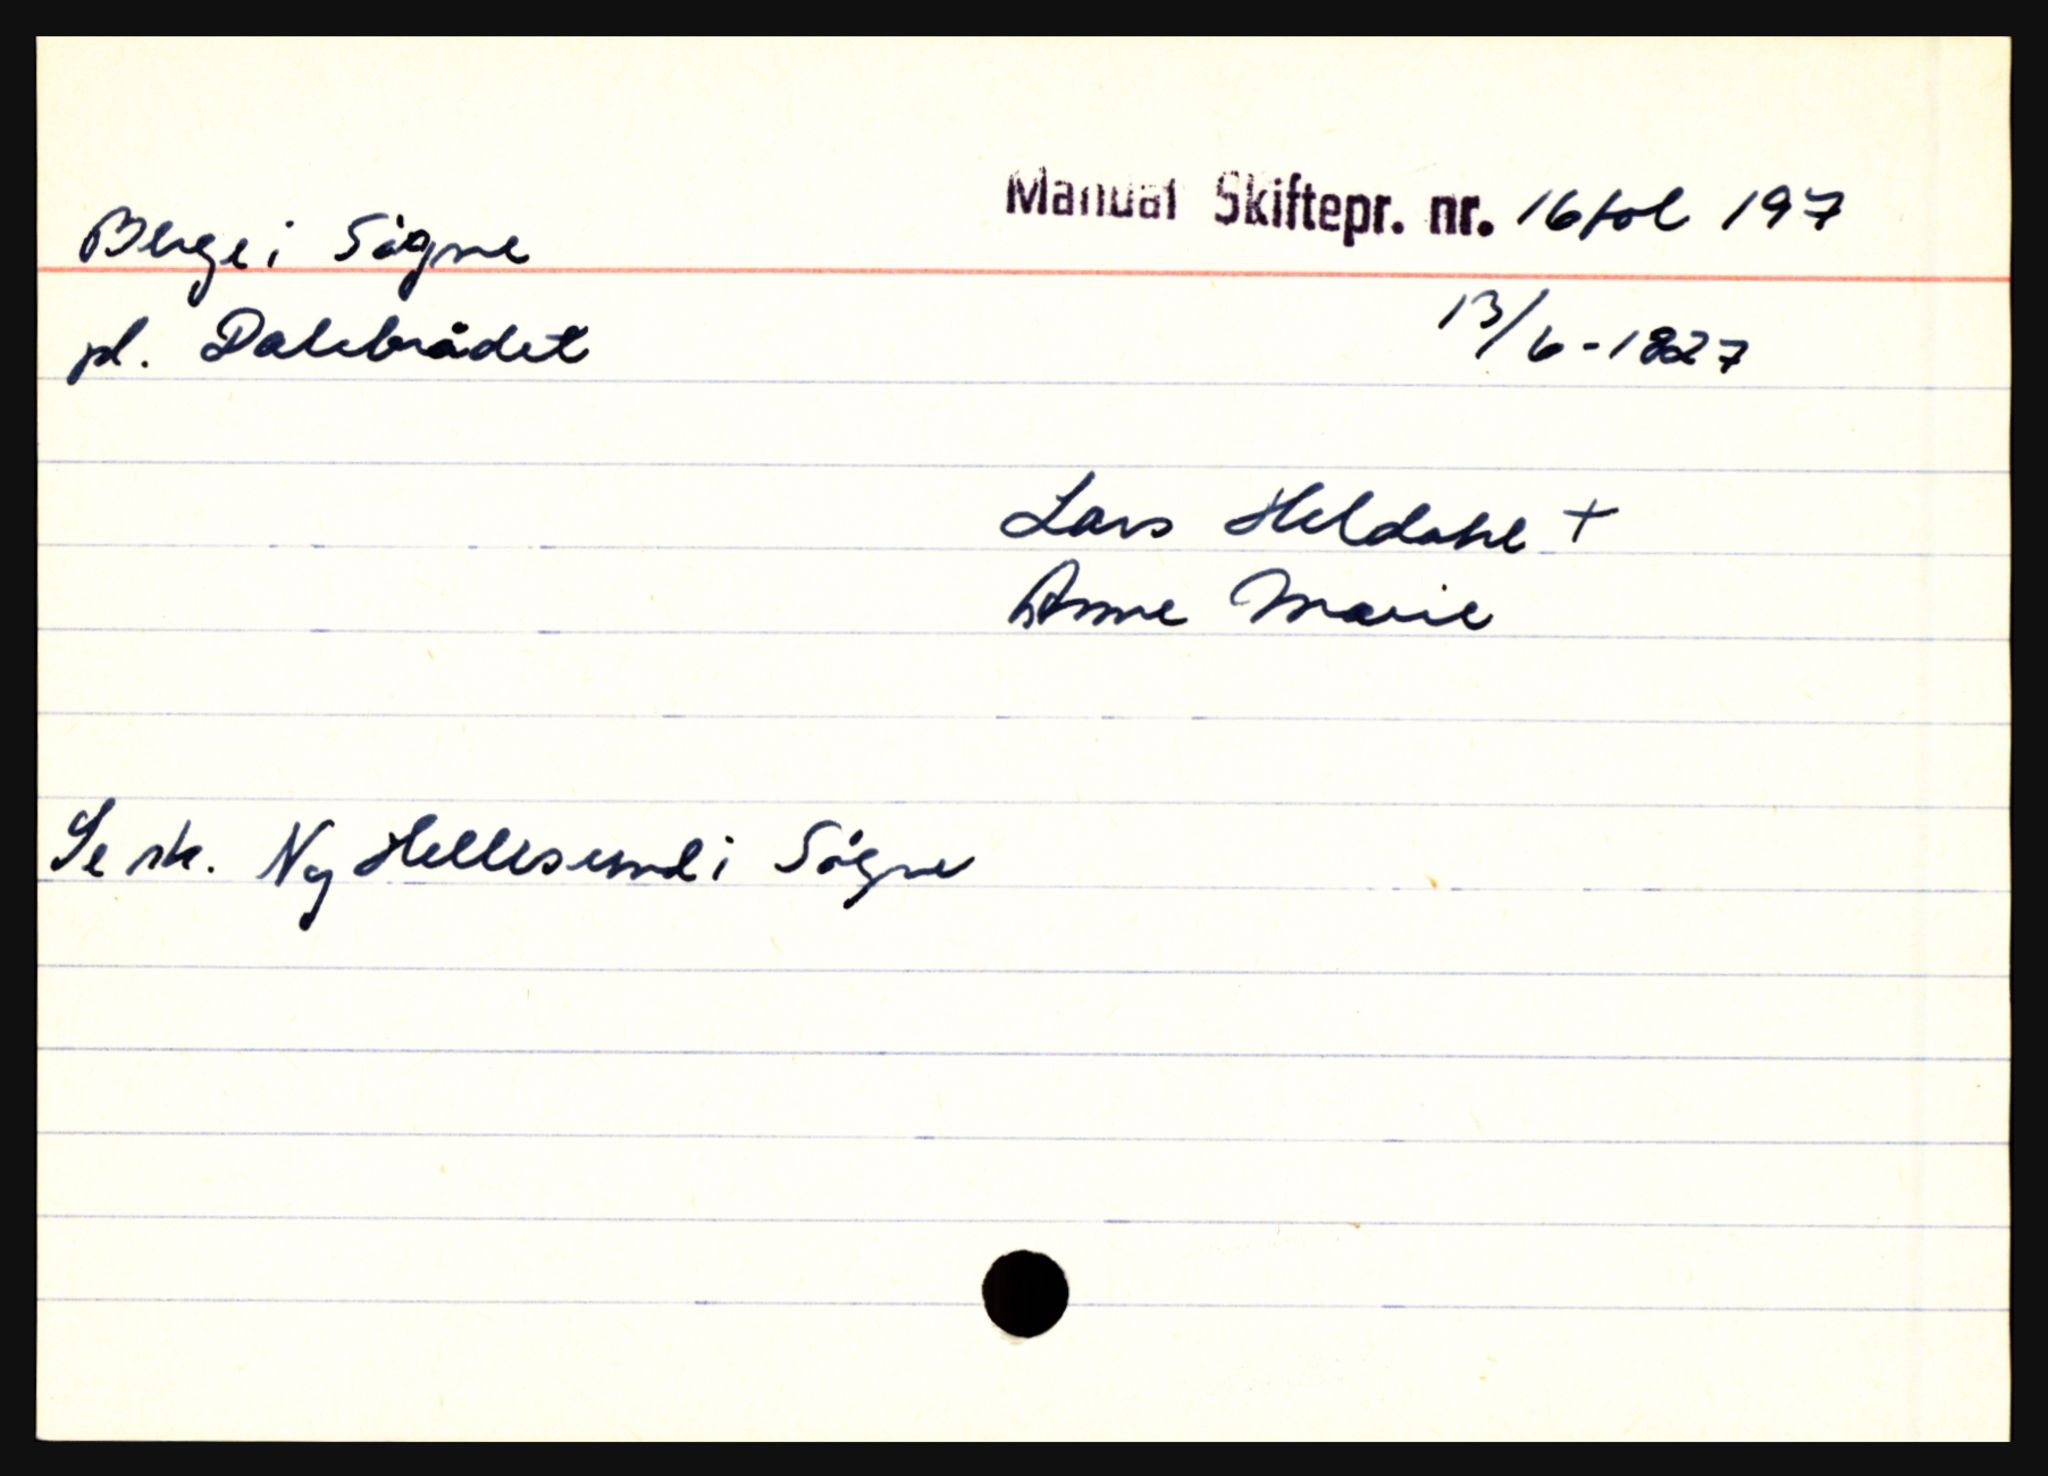 Manual Skiftepr. nr. 16 fol 197
Berge i Sögne
pl. Dalebrådet
13/6-1827
Lars Heldahl +
Anne Marie
Se sk. Ny Hellesund i Sögne